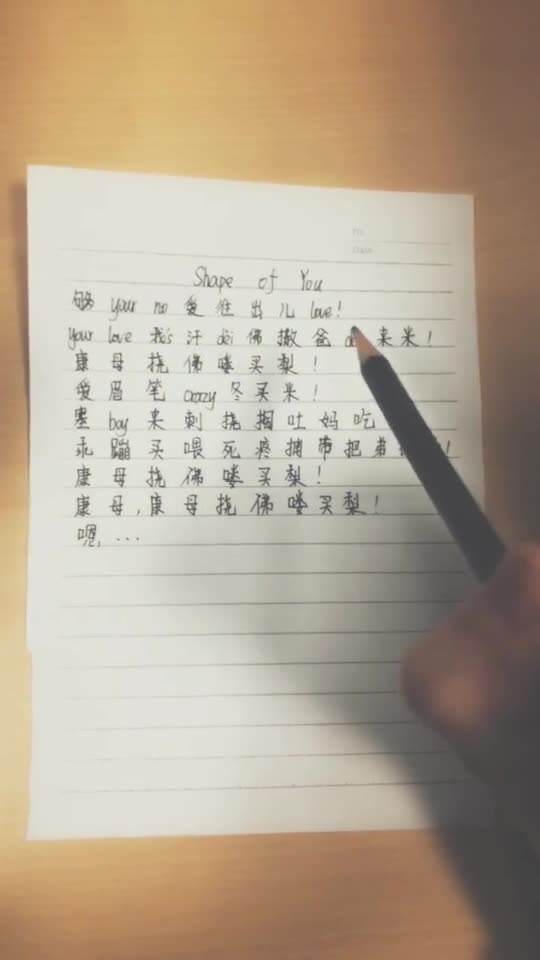 No.
Date
Shape of You
够 your no 爱 住 出 儿 love!
your love 我's 汗 dei 佛 撒 爸 来 米!
康 母 挠 佛 喽 买 梨!
爱 眉 笔 crazy 冬 买 米!
塞 boy 来 刺 挠 掴 吐 妈 吃
乖 蹦 买 喂 死 疼 捕 带 把 弟!
康 母 挠 佛 喽 买 梨!
康 母, 康 母 挠 佛 喽 买 梨!
嗯, ...